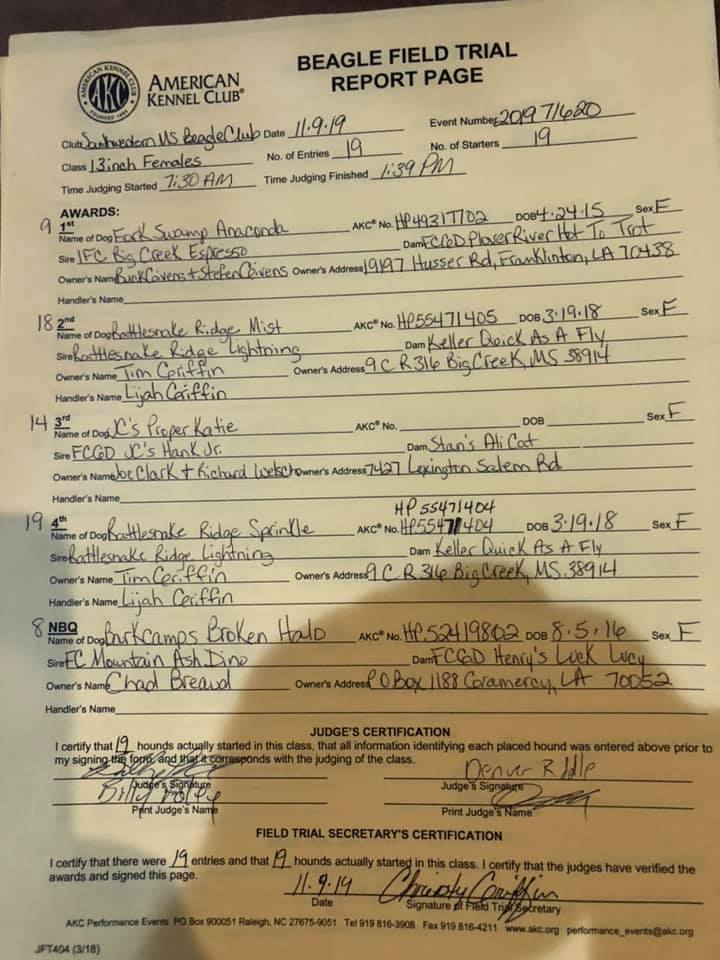 BEAGLE FIELD TRIAL
REPORT PAGE
AMERICAN KENNEL CLUB
AKC
FOUNDED 1884
AMERICAN
KENNEL CLUB®
Club Southwestern MS Beagle Club Date 11.9.19 Event Number 2019711620
Class 13 inch Females No. of Entries 19 No. of Starters 19
Time Judging Started 7:30 AM Time Judging Finished 1:39 PM
AWARDS:
9 1st
Name of Dog Fork Swamp Anaconda AKC® No. HP49317702 DOB 4.24.15 Sex F
Sire IFC Big Creek Espresso Dam FCGD Plover River Hot To Trot
Owner's Name Buck Givens + Stefen Givens Owner's Address 19197 Husser Rd, Franklinton, LA 70438
Handler's Name
18 2nd
Name of Dog Rattlesnake Ridge Mist AKC® No. HP55471405 DOB 3.19.18 Sex F
Sire Rattlesnake Ridge Lightning Dam Keller Quick As A Fly
Owner's Name Tim Griffin Owner's Address 9 C R 316 Big Creek, MS 38914
Handler's Name Lijah Griffin
14 3rd
Name of Dog JC's Proper Katie AKC® No. DOB Sex F
Sire FCGD JC's Hank Jr. Dam Stan's Ali Cat
Owner's Name Joe Clark + Richard Owner's Address 7427 Lexington Salem Rd
Handler's Name
HP55471404
19 4th
Name of Dog Rattlesnake Ridge Sprinkle AKC® No. HP55471404 DOB 3.19.18 Sex F
Sire Rattlesnake Ridge Lightning Dam Keller Quick As A Fly
Owner's Name Tim Griffin Owner's Address 9 C R 316 Big Creek, MS. 38914
Handler's Name Lijah Griffin
8 NBQ
Name of Dog Barkcamps Broken Halo AKC® No. HP52419802 DOB 8.5.16 Sex F
Sire FC Mountain Ash Dino Dam FCGD Henry's Luck Lucy
Owner's Name Chad Breaud Owner's Address P O Box 1188 Gramercy, LA 70052
Handler's Name
JUDGE'S CERTIFICATION
I certify that 19 hounds actually started in this class, that all information identifying each placed hound was entered above prior to
my signing the form, and that it corresponds with the judging of the class.
Denver Riddle
Judge's Signature Judge's Signature
Billy
Print Judge's Name Print Judge's Name
FIELD TRIAL SECRETARY'S CERTIFICATION
I certify that there were 19 entries and that 19 hounds actually started in this class. I certify that the judges have verified the
awards and signed this page.
11.9.19 Christy Griffin
Date Signature of Field Trial Secretary
AKC Performance Events PO Box 900051 Raleigh, NC 27675-9051 Tel 919 816-3908 Fax 919 816-4211 www.akc.org performance_events@akc.org
JFT404 (3/18)